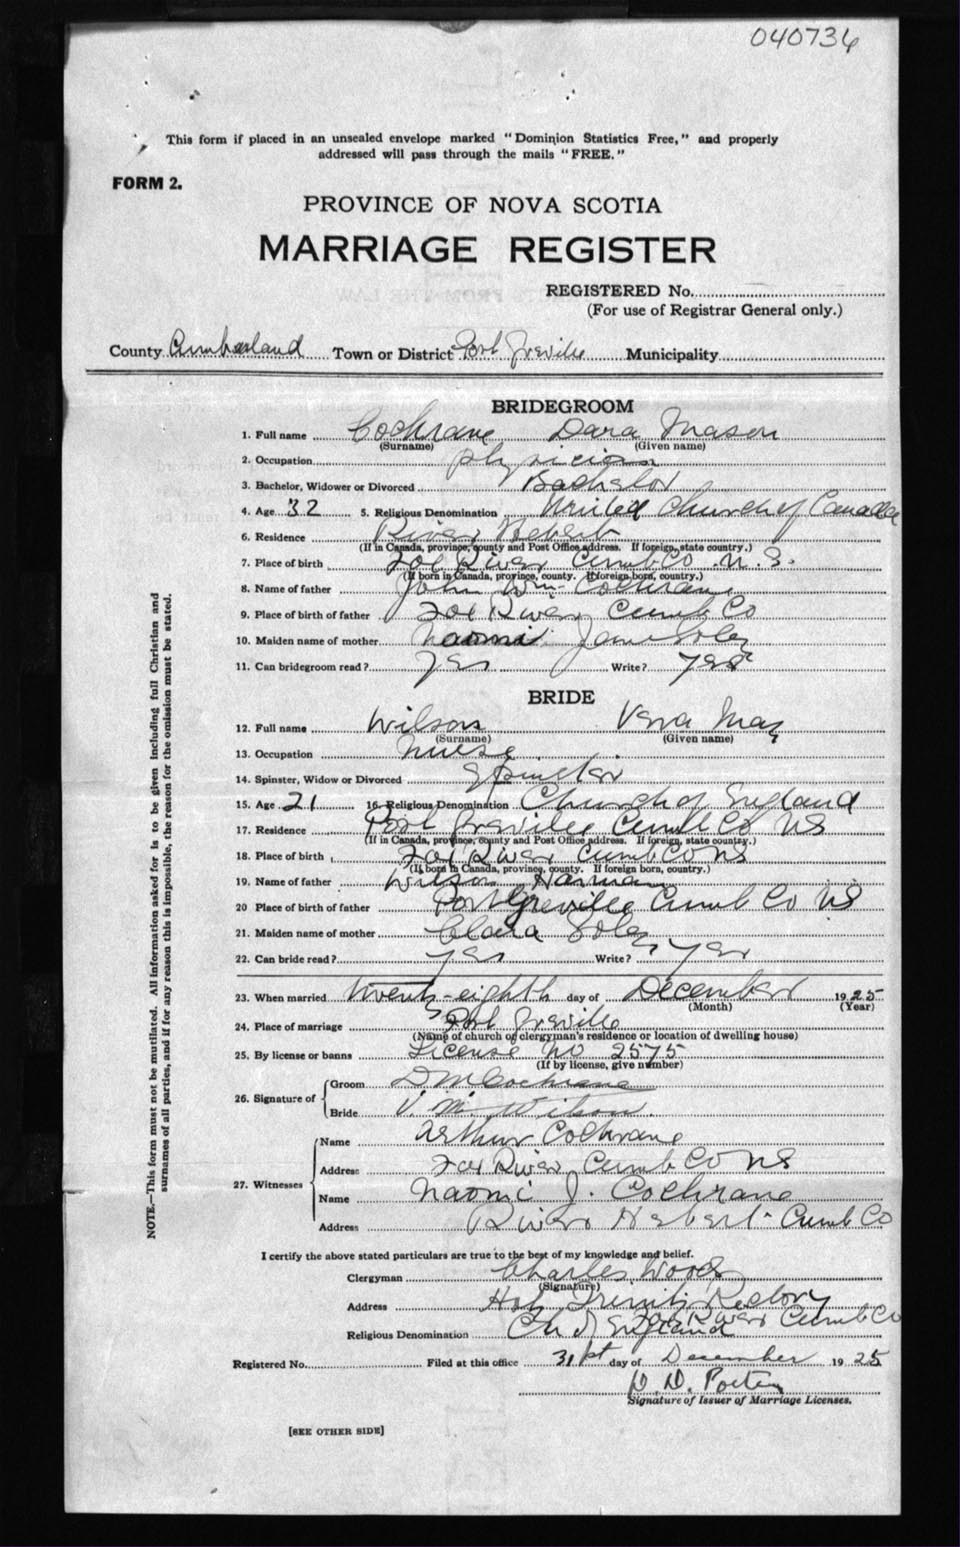 040736
This form if placed in an unsealed envelope marked "Dominion Statistics Free," and properly
addressed will pass through the mails "FREE."
FORM 2.
PROVINCE OF NOVA SCOTIA
MARRIAGE REGISTER
REGISTERED No.
(For use of Registrar General only.)
County Cumberland Town or District Port Greville Municipality
BRIDEGROOM
1. Full name Cochrane Dara Mason
(Surname) (Given name)
2. Occupation physician
3. Bachelor, Widower or Divorced Bachelor
4. Age 32 5. Religious Denomination United Church of Canada
6. Residence River Hebert
(If in Canada, province, county and Post Office address. If foreign, state country.)
7. Place of birth Fox River Cumb Co. N. S.
(If born in Canada, province, county. If foreign born, country.)
8. Name of father John Wm. Cochrane
9. Place of birth of father Fox River Cumb Co
10. Maiden name of mother Naomi Jane Soley
11. Can bridegroom read? yes Write? yes
BRIDE
12. Full name Wilson Vera May
(Surname) (Given name)
13. Occupation nurse
14. Spinster, Widow or Divorced Spinster
15. Age 21 16. Religious Denomination Church of England
17. Residence Port Greville Cumb Co NS
(If in Canada, province, county and Post Office address. If foreign, state country.)
18. Place of birth Fox River Cumb Co NS
(If born in Canada, province, county. If foreign born, country.)
19. Name of father Wilson
20 Place of birth of father Port Greville Cumb Co NS
21. Maiden name of mother Clara Soley
22. Can bride read? yes Write? yes
23. When married twenty-eighth day of December 1925
(Month) (Year)
24. Place of marriage Port Greville
(Name of church or clergyman's residence or location of dwelling house)
25. By license or banns License No 2575
(If by license, give number)
26. Signature of
Groom D M Cochrane
Bride V. M. Wilson.
27. Witnesses
Name Arthur Cochrane
Address Fox River Cumb Co NS
Name Naomi J. Cochrane
Address River Hebert - Cumb Co
I certify the above stated particulars are true to the best of my knowledge and belief.
Clergyman Charles Wood
(Signature)
Address Holy Trinity Rectory
Fox River Cumb Co
Religious Denomination Ch of England
Registered No. Filed at this office 31st day of December 1925
D. Porter
Signature of Issuer of Marriage Licenses.
[SEE OTHER SIDE]
NOTE.—This form must not be mutilated. All information asked for is to be given including full Christian and
surnames of all parties, and if for any reason this is impossible, the reason for the omission must be stated.